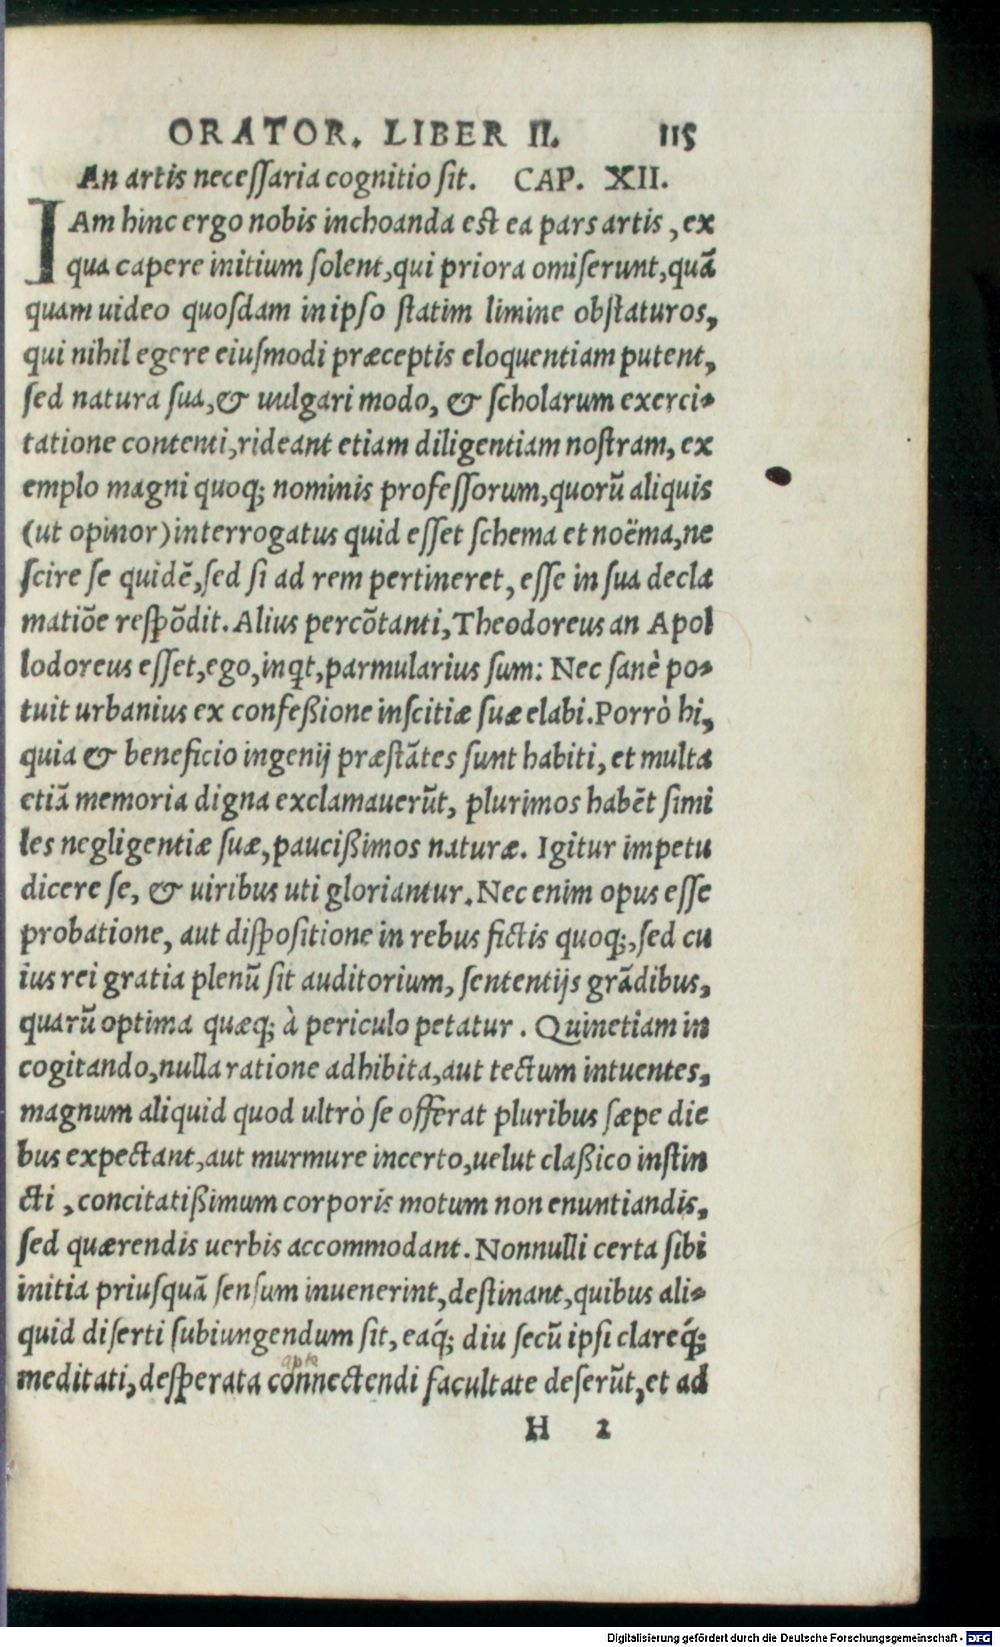 ORATOR. LIBER II. 115
An artis necessaria cognitio sit. CAP. XII.
IAm hinc ergo nobis inchoanda est ea pars artis, ex
qua capere initium solent, qui priora omiserunt, quā
quam uideo quosdam in ipso statim limine obstaturos,
qui nihil egere eiusmodi præceptis eloquentiam putent,
sed natura sua, & uulgari modo, & scholarum exerci-
tatione contenti, rideant etiam diligentiam nostram, ex
emplo magni quoq; nominis professorum, quorū aliquis
(ut opinor) interrogatus quid esset schema et noëma, ne
scire se quidē, sed si ad rem pertineret, esse in sua decla
matiōe respōdit. Alius percōtanti, Theodoreus an Apol
lodoreus esset, ego, inqt, parmularius sum: Nec sanè po-
tuit urbanius ex confeßione inscitiæ suæ elabi. Porrò hi,
quia & beneficio ingenij præstātes sunt habiti, et multa
etiā memoria digna exclamauerūt, plurimos habēt simi
les negligentiæ suæ, paucißimos naturæ. Igitur impetu
dicere se, & uiribus uti gloriantur. Nec enim opus esse
probatione, aut dispositione in rebus fictis quoq;, sed cu
ius rei gratia plenū sit auditorium, sententijs grādibus,
quarū optima quæq; à periculo petatur. Quinetiam in
cogitando, nulla ratione adhibita, aut tectum intuentes,
magnum aliquid quod ultrò se offerat pluribus sæpe die
bus expectant, aut murmure incerto, uelut claßico instin
cti, concitatißimum corporis motum non enuntiandis,
sed quærendis uerbis accommodant. Nonnulli certa sibi
initia priusquā sensum inuenerint, destinant, quibus ali-
quid diserti subiungendum sit, eaq́; diu secū ipsi clareq́;
apta
meditati, desperata connectendi facultate deserūt, et ad
H 2
Digitalisierung gefördert durch die Deutsche Forschungsgemeinschaft - DFG